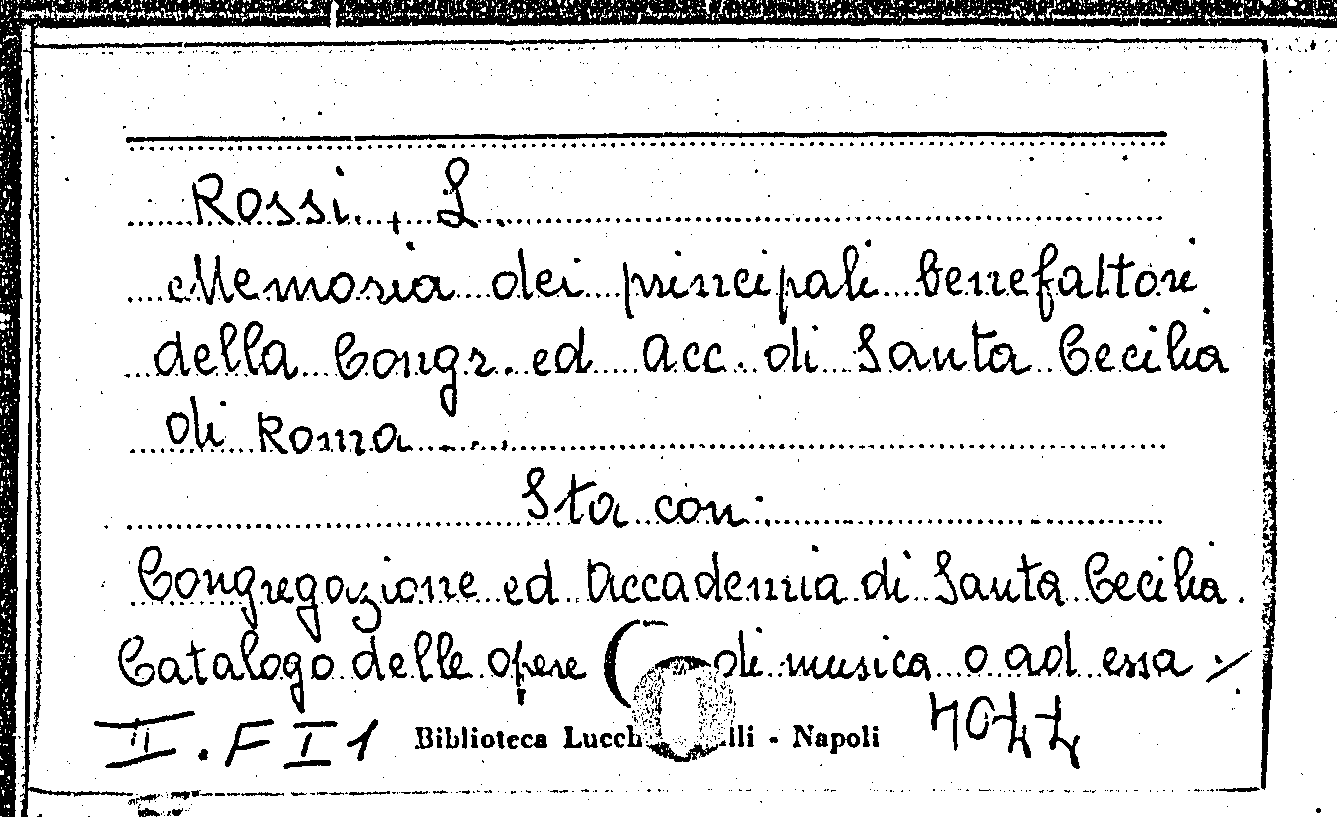 Rossi, L.
Memoria dei principali benefattori
della Congr. ed Acc. di Santa Cecilia
di Roma ....
Sta con:
Congregazione ed Accademia di Santa Cecilia.
Catalogo delle opere ( di musica o ad essa ./
II. F I 1 Biblioteca Lucch lli - Napoli